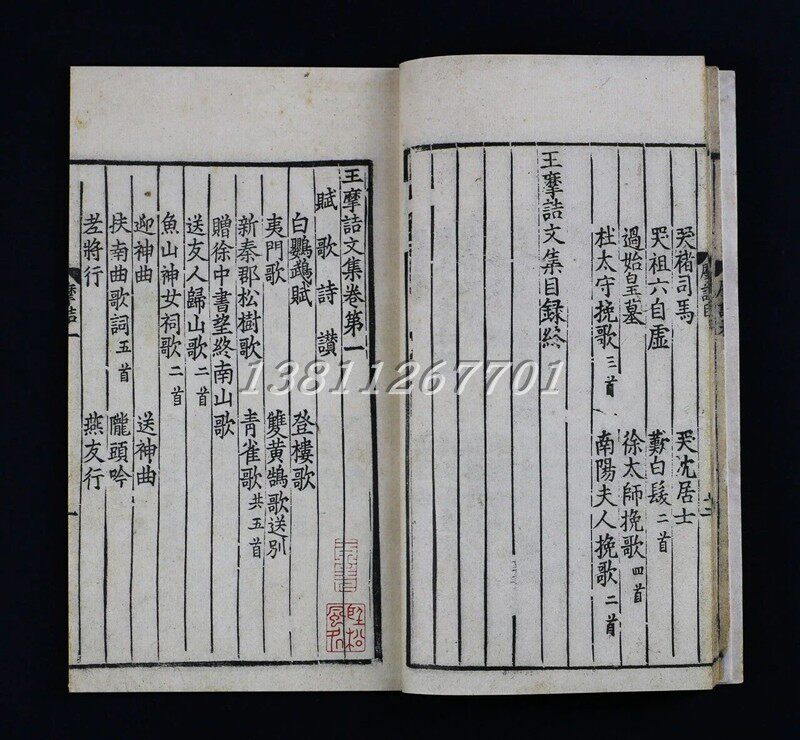 哭褚司馬　哭沈居士
哭祖六自虛　歎白髮二首
過始皇墓　徐太師挽歌四首
杜太守挽歌三首　南陽夫人挽歌二首
王摩詰文集目録終
王摩詰文集卷第一
賦歌詩讃
白鸚鵡賦　登樓歌
夷門歌　雙黃鵠歌送別
新秦郡松樹歌　青雀歌共五首
贈徐中書望終南山歌
送友人歸山歌二首
魚山神女祠歌二首
迎神曲　送神曲
扶南曲歌詞五首　隴頭吟
老將行　燕支行
摩詰一
一
13811267701